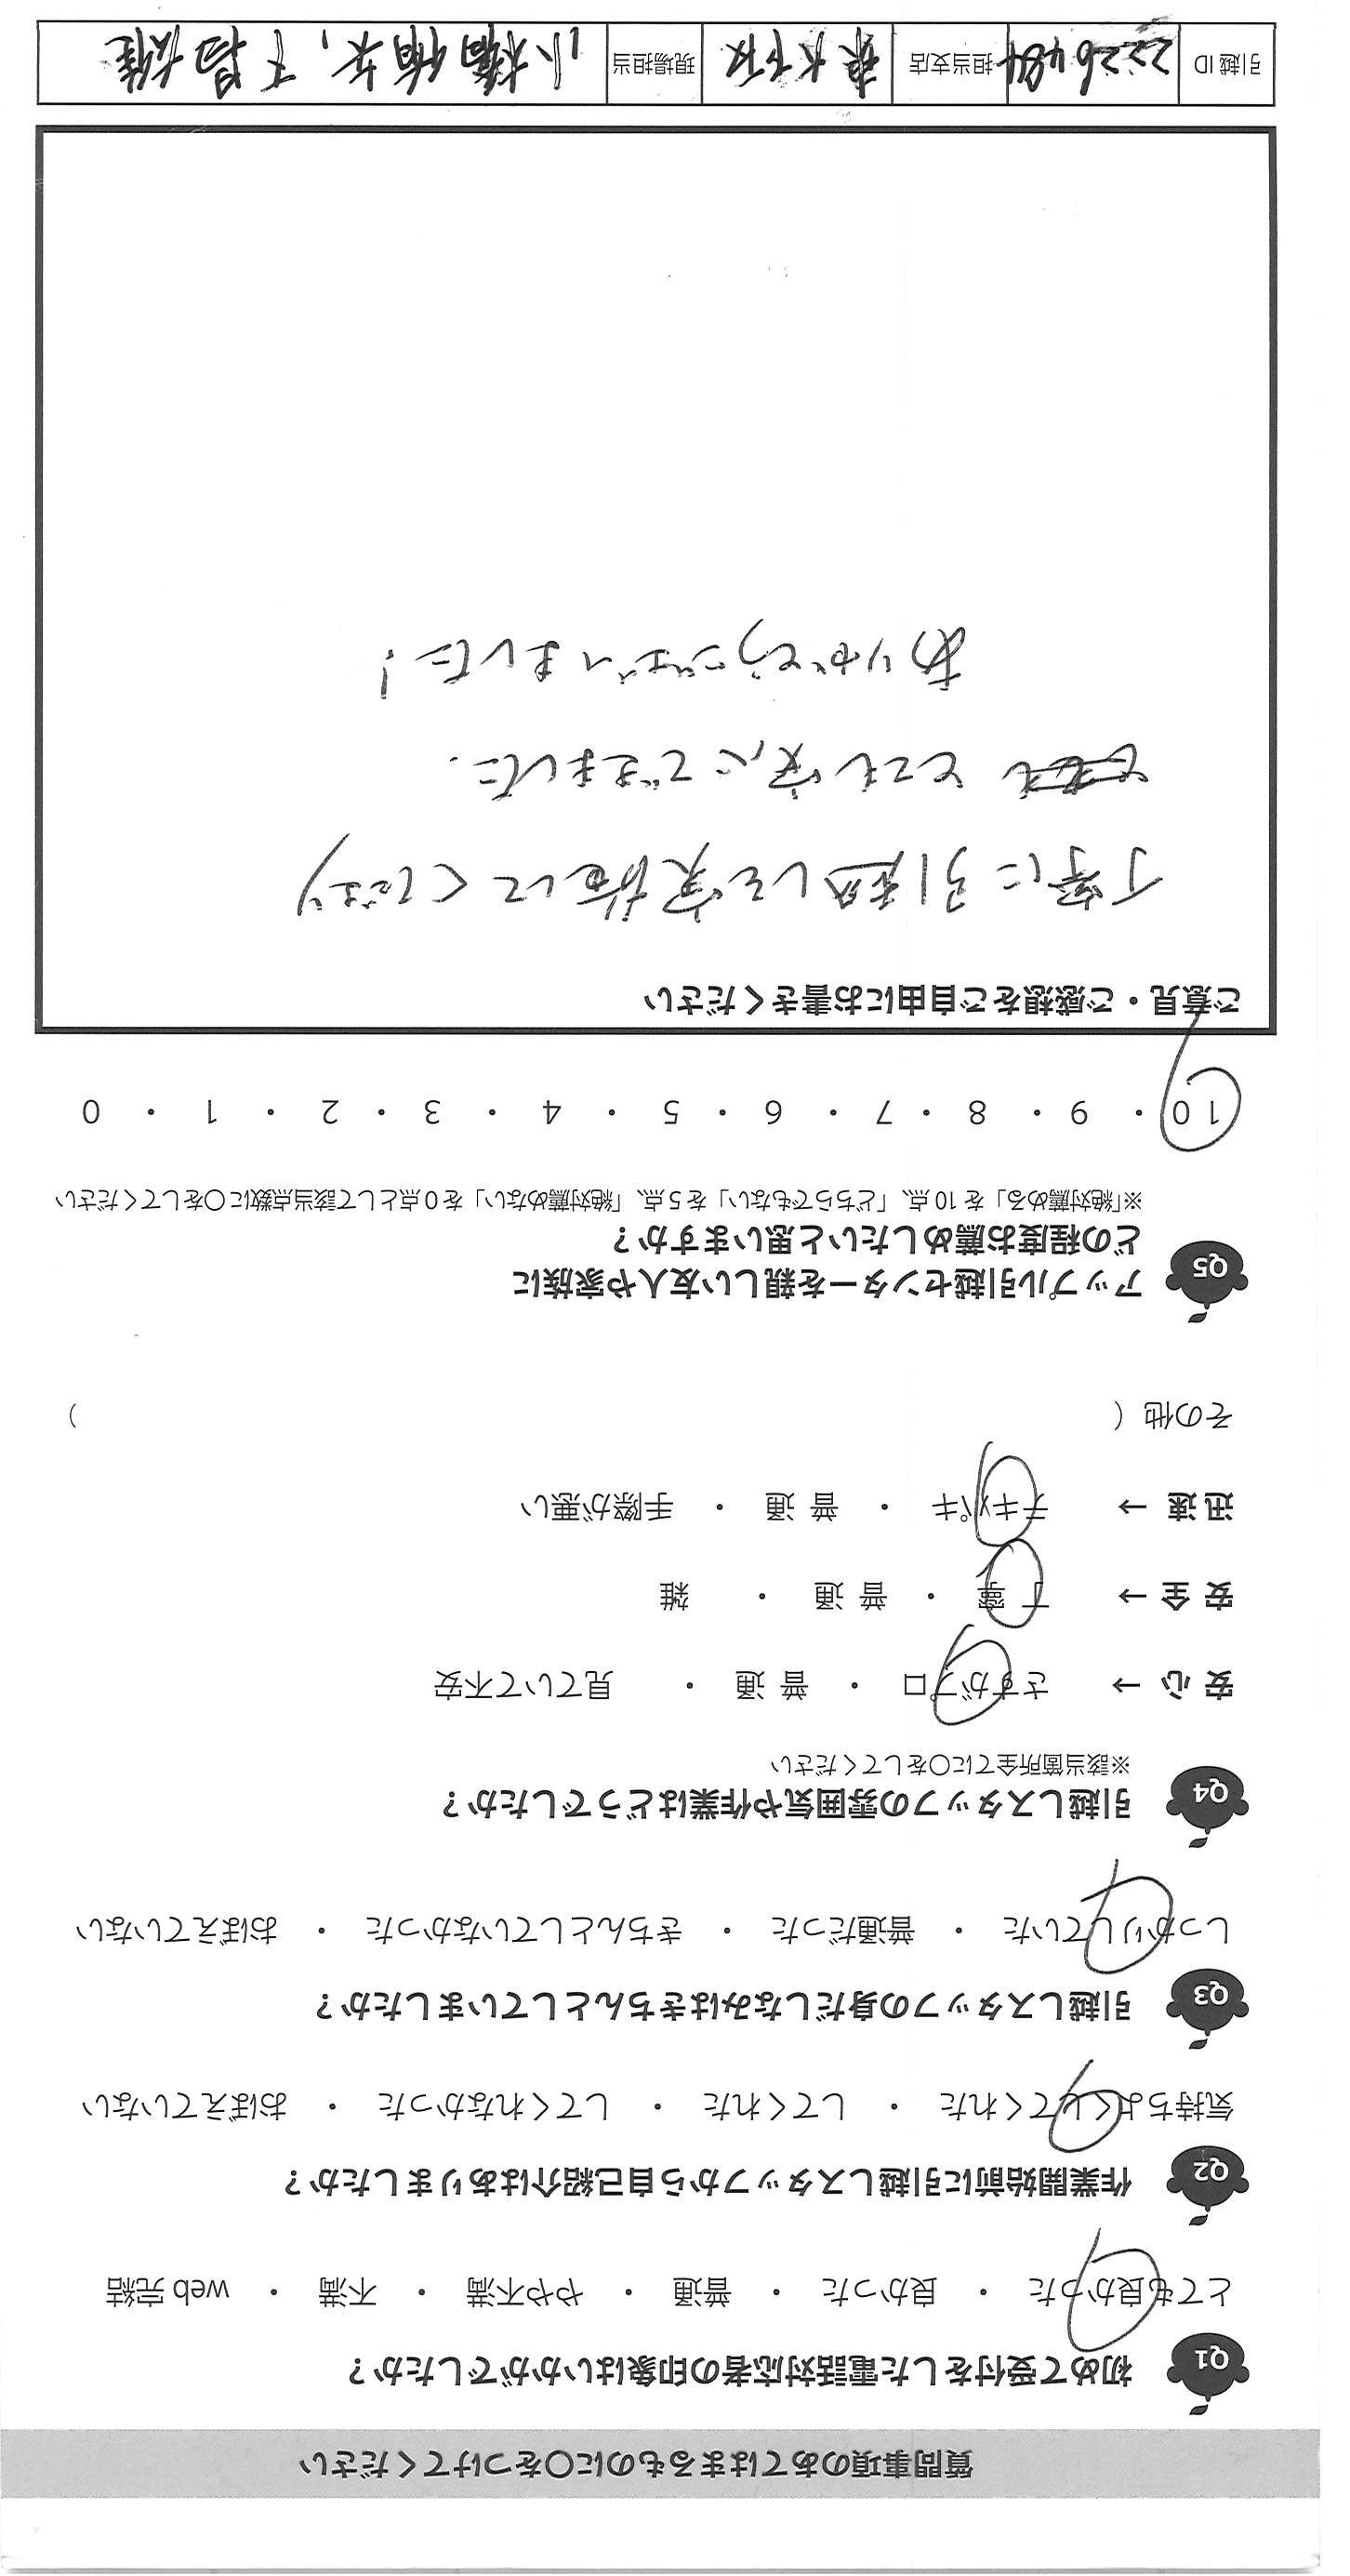 質問事項のあてはまるものに〇をつけてください
Q1 初めて受付をした電話対応者の印象はいかがでしたか？
とても良かった ・ 良かった ・ 普通 ・ やや不満 ・ 不満 ・ web 完結
Q2 作業開始前に引越しスタッフから自己紹介はありましたか？
気持ちよくしてくれた ・ してくれた ・ してくれなかった ・ おぼえていない
Q3 引越しスタッフの身だしなみはきちんとしていましたか？
しっかりしていた ・ 普通だった ・ きちんとしていなかった ・ おぼえていない
Q4 引越しスタッフの雰囲気や作業はどうでしたか？
※該当箇所全てに〇をしてください
安心 → さすがプロ ・ 普通 ・ 見ていて不安
安全 → 丁寧 ・ 普通 ・ 雑
迅速 → テキパキ ・ 普通 ・ 手際が悪い
その他（ ）
Q5 アップル引越センターを親しい友人や家族に
どの程度お薦めしたいと思いますか？
※「絶対薦める」を 10 点、「どちらでもない」を 5 点、「絶対薦めない」を 0 点として該当点数に〇をしてください
10 ・ 9 ・ 8 ・ 7 ・ 6 ・ 5 ・ 4 ・ 3 ・ 2 ・ 1 ・ 0
ご意見・ご感想をご自由にお書きください
丁寧に引越しを実施してくださり
とても安心できました.
ありがとうございました！
引越 ID 2226484 担当支店 現場担当